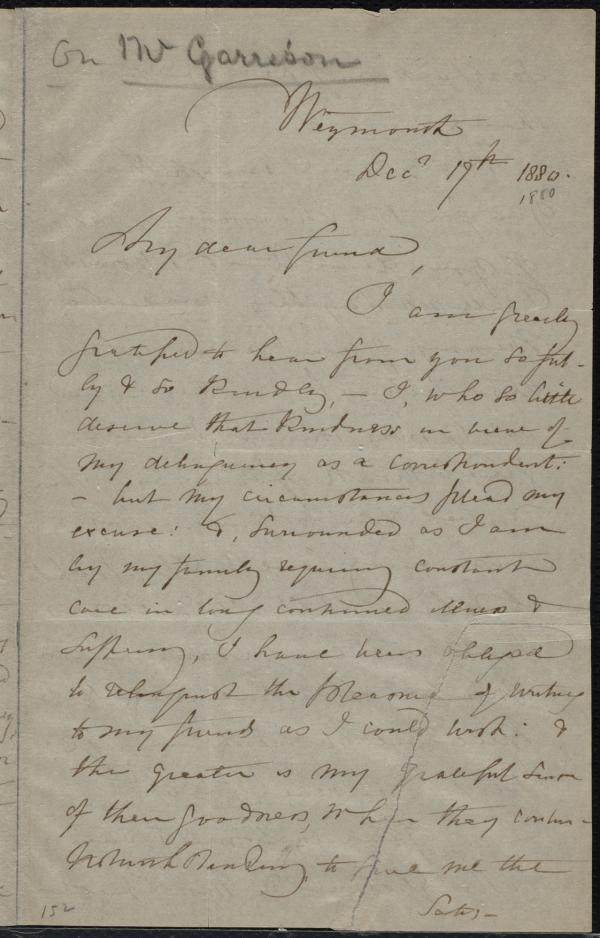 On Mr Garrison
Weymouth
Decr 19th 1880.
1880
My dear friend,
I am greatly
gratified to hear from you so ful-
ly & so kindly, – I, who so little
deserve that kindness in view of
my delinquency as a correspondent:
– but my circumstances plead my
excuse: &, surrounded as I am
by my family requiring constant
care in long continued illness &
suffering, I have been obliged
to relinquish the pleasure of writing
to my friends as I could wish: &
the greater is my grateful sense
of their goodness, when they
notwithstanding, to give me the
satis-
152